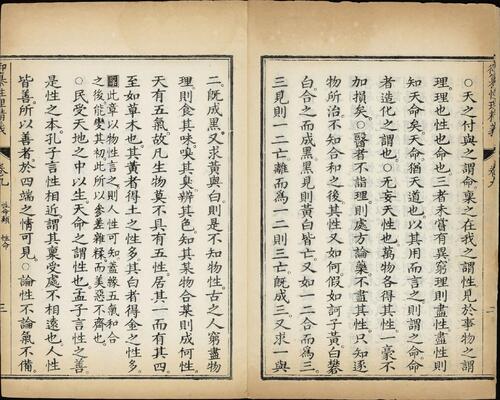 ○天之付與之謂命稟之在我之謂性見於事物之謂
理理也性也命也三者未嘗有異窮理則盡性盡性則
知天命矣天命猶天道也以其用而言之則謂之命命
者造化之謂也○无妄天性也萬物各得其性一毫不
加損矣○醫者不詣理則處方論藥不盡其性只知逐
物所治不知合和之後其性又如何假如訶子黃白礬
白合之而成黑黑見則黃白皆亡又如一二合而爲三
三見則一二亡離而爲一二則三亡既成三又求一與
御纂性理精義
卷九
性命類 性命
三
二既成黑又求黃與白則是不知物性古之人窮盡物
理則食其味嗅其臭辨其色知其某物合某則成何性
天有五氣故凡生物莫不具有五性居其一而有其四
至如草木也其黃者得土之性多其白者得金之性多
此章以物性言之則人性可知蓋緣五氣和合
之後能變其初此所以參差雜糅而美惡不齊也
○民受天地之中以生天命之謂性也孟子言性之善
是性之本孔子言性相近謂其稟受處不相遠也人性
皆善所以善者於四端之情可見○論性不論氣不備